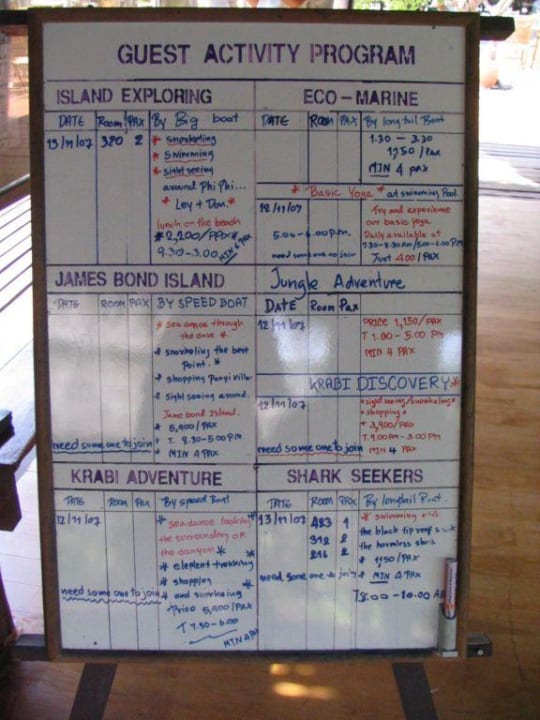 GUEST ACTIVITY PROGRAM
ISLAND EXPLORING
DATE Room PAX By Big boat
13/11/07 320 2 * snorkeling
* Swimming
* sight seeing
around Phi Phi...
* Ley + Don. *
lunch on the beach
* 2,200/PAX *
9.30-3.00 MIN 6 PAX
ECO-MARINE
DATE ROOM PAX By longtail Boat
1.30 - 3.30
1,150/Pax
MIN 4 pax
* Basic Yoga * at swimming Pool.
12/11/07 Try and experience
our basic yoga
5.00-6.00 P.m. Daily available at
7.30-8.30 AM/5.00-6.00 PM
need someone to join Just 400/PAX
JAMES BOND ISLAND
DATE ROOM PAX BY SPEED BOAT
* sea canoe through
the cave *
* snorkeling the best
Point. *
* shopping Panyi village
* sight seeing around.
Jame bond Island.
* 5,900/PAX
* T. 8.30-5.00 PM
need some one to join * MIN 4 PAX
Jungle Adventure
DATE Room Pax
12/11/07 PRICE 1,150/PAX
T 1.00 - 5.00 PM
MIN 4 PAX
KRABI DISCOVERY *
12/11/07 * sight seeing/snorkeling *
* shopping *
* 3,900/PAX
T. 9.00 AM - 3.00 PM
need some one to join MIN 4 PAX
KRABI ADVENTURE
DATE ROOM PAX By speed Boat
12/11/07 * sea canoe looking
the surrounding of
the canyon *
* elephant trekking
* shopping
need some one to join * and snorkeling
Price 5,900/PAX
T 7.30-6.00
MIN 4 PAX
SHARK SEEKERS
DATE ROOM PAX By longtail Boat.
13/11/07 423 1 * swimming
312 2 the black tip reef
216 2 the harmless
* 1,150/PAX
need some one to join * MIN 4 PAX
T 8.00 - 10.00 AM